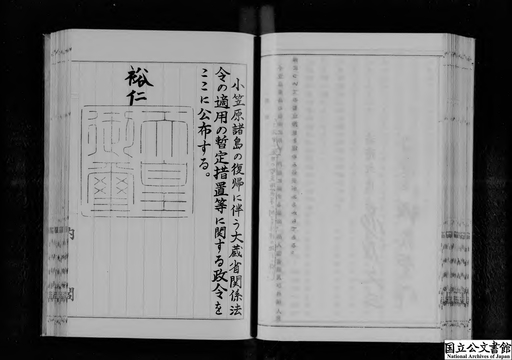 小笠原諸島の復帰に伴う大蔵省関係法
令の適用の暫定措置等に関する政令を
ここに公布する。
裕仁
天皇
御璽
内閣
国立公文書館
National Archives of Japan